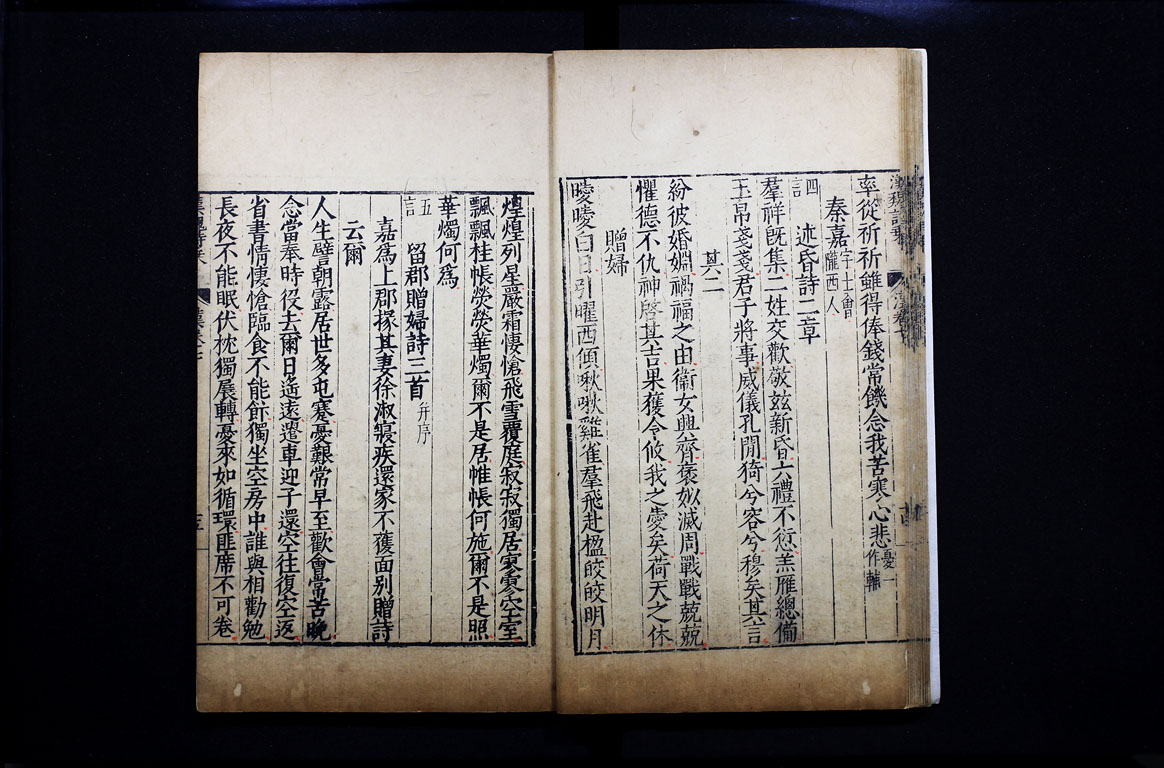 率從祈祈雖得俸錢常饑念我苦寒心悲憂一作輔
秦嘉字士會隴西人
四言 述昏詩二章
羣祥既集二姓交歡敬兹新昏六禮不愆羔雁總備
玉帛戔戔君子將事威儀孔閒猗兮容兮穆矣其言
其二
紛彼婚姻禍福之由衞女興齊褒姒滅周戰戰兢兢
懼德不仇神啓其吉果獲令攸我之愛矣荷天之休
贈婦
曖曖白日引曜西傾啾啾雞雀羣飛赴楹皎皎明月
煌煌列星嚴霜悽愴飛雪覆庭寂寂獨居寥寥空室
飄飄桂帳熒熒華燭爾不是居帷帳何施爾不是照
華燭何爲
五言 留郡贈婦詩三首并序
嘉爲上郡掾其妻徐淑寢疾還家不獲面别贈詩
云爾
人生譬朝露居世多屯蹇憂艱常早至歡會常苦晚
念當奉時役去爾日遙遠遣車迎子還空往復空返
省書情悽愴臨食不能飰獨坐空房中誰與相勸勉
長夜不能眠伏枕獨展轉憂來如循環匪席不可卷